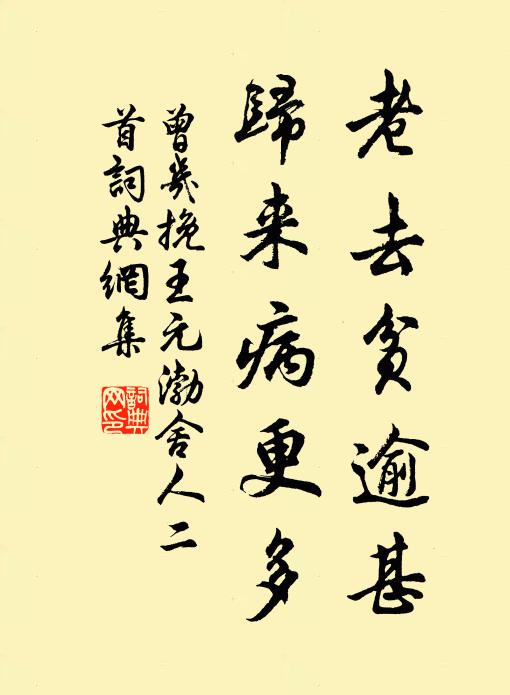 老去贫逾甚
歸来病更多
曾幾挽王元渤舍人二
首詞典網集
詞典网印